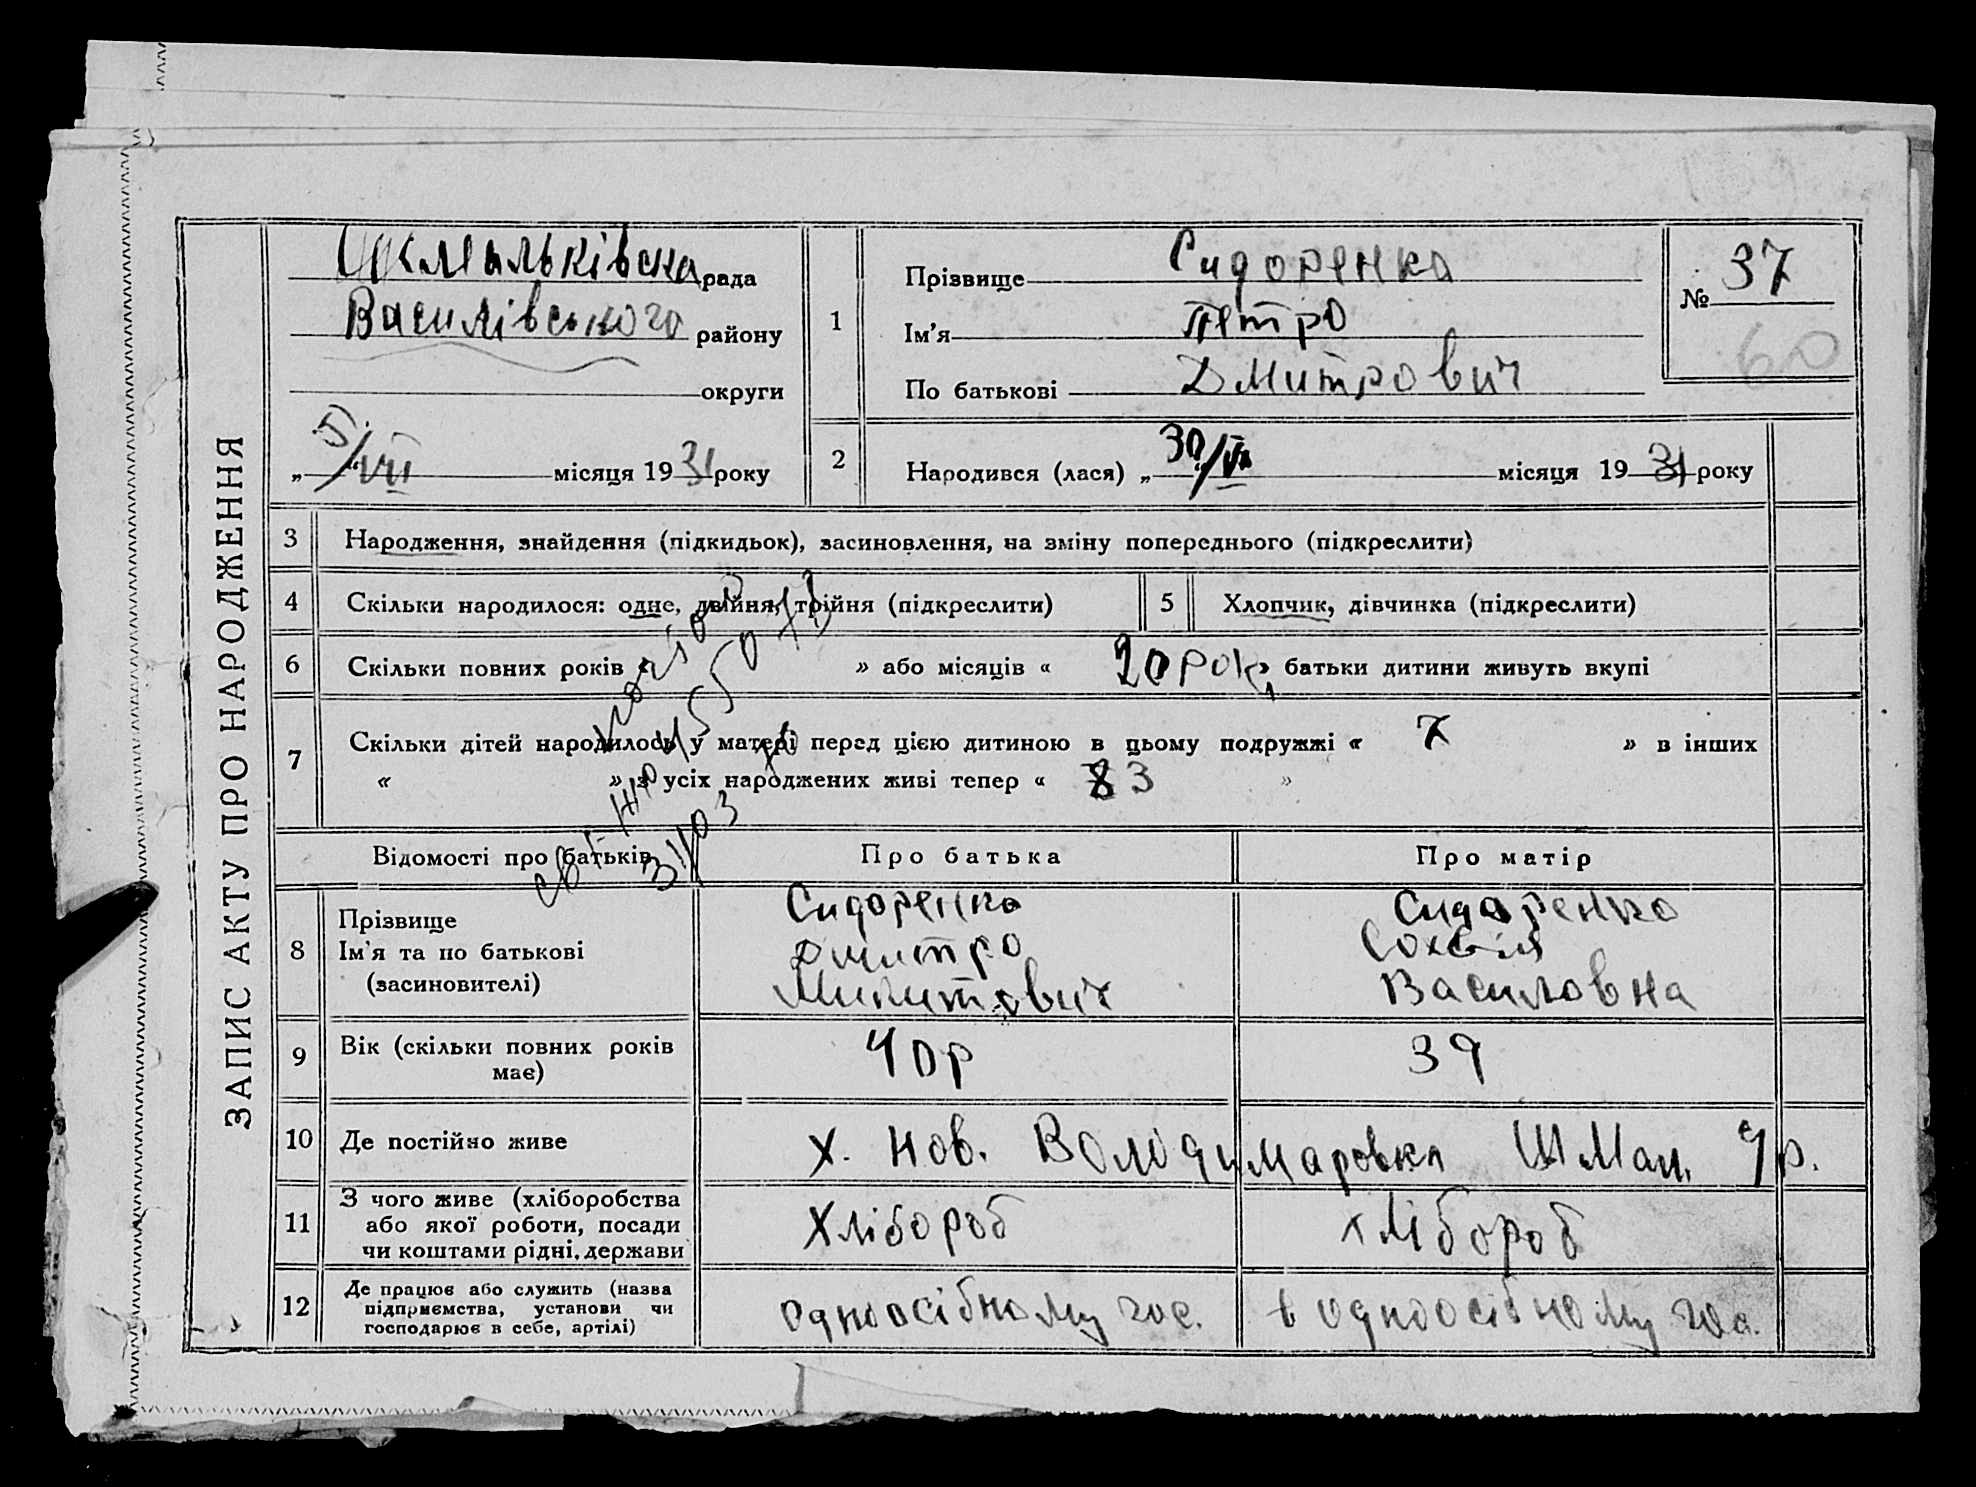 ЗАПИС АКТУ ПРО НАРОДЖЕННЯ
Шмальківська рада
Василівського району
округи
„ 5/VII “ місяця 1931 року
1
Прізвище Сидоренко
Ім'я Петро
По батькові Дмитрович
№ 37
60
2
Народився (лася) „ 30/VI “ місяця 1931 року
3 Народження, знайдення (підкидьок), засиновлення, на зміну попереднього (підкреслити)
4 Скільки народилося: одне, двійня, трійня (підкреслити)
5 Хлопчик, дівчинка (підкреслити)
6 Скільки повних років « » або місяців « 20 рок. » батьки дитини живуть вкупі
7 Скільки дітей народилось у матері перед цією дитиною в цьому подружжі « 7 » в інших
« » з усіх народжених живі тепер « 3 »
Відомості про батьків
Про батька
Про матір
8
Прізвище
Ім'я та по батькові
(засиновителі)
Сидоренко
Дмитро
Сидоренко
Василовна
9
Вік (скільки повних років
має)
40 р
39
10 Де постійно живе
х. Нов. Володимаровка
11
З чого живе (хліборобства
або якої роботи, посади
чи коштами рідні, держави
Хлібороб
хлібороб
12
Де працює або служить (назва
підприємства, установи чи
господарює в себе, артілі)
одноосібному гос.
в одноосібному гос.